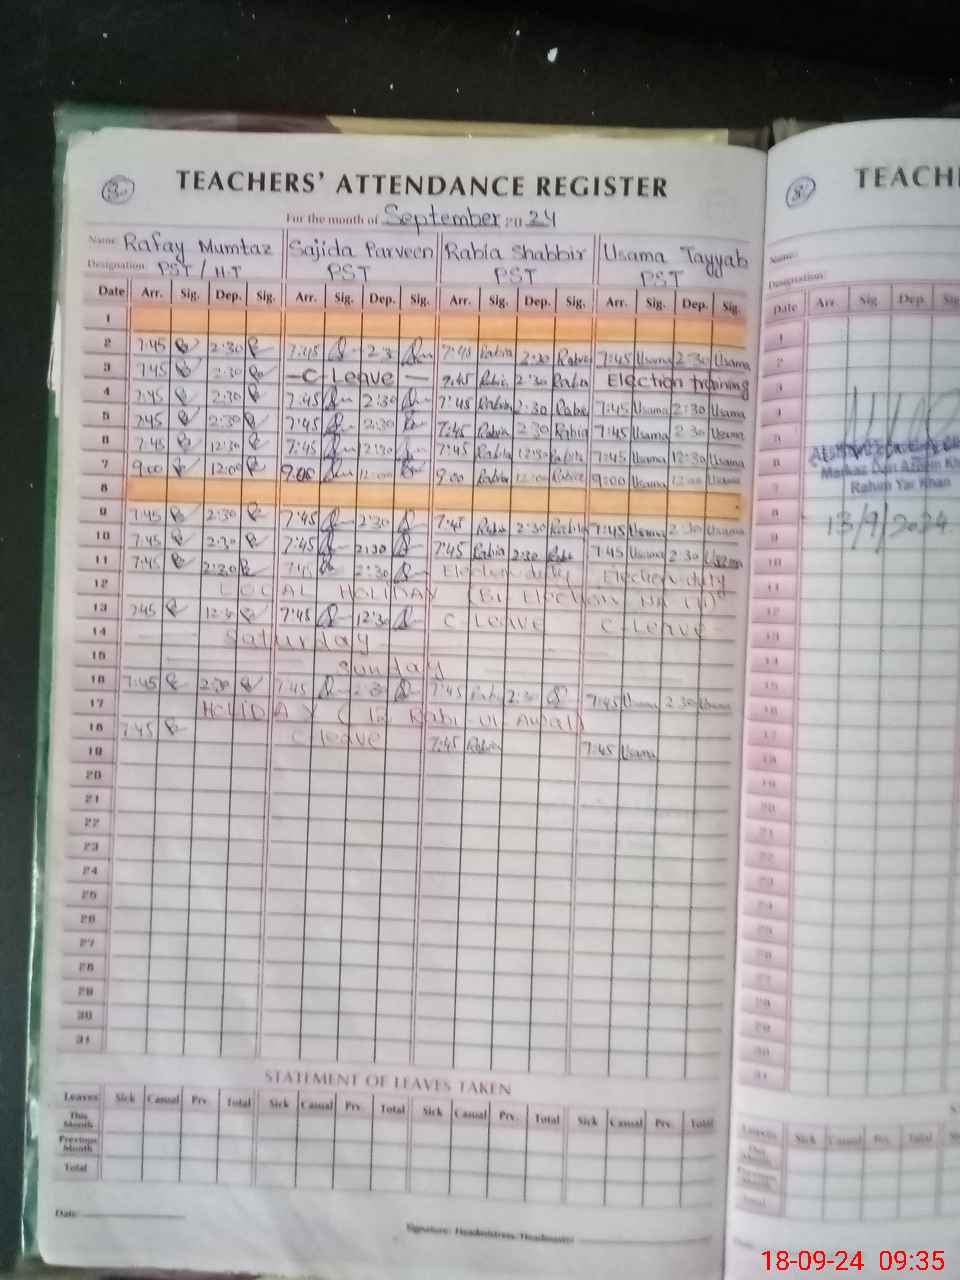 3 TEACHERS' ATTENDANCE REGISTER
For the month of September 2024
Name: Rafay Mumtaz Sajida Parveen Rabia Shabbir Usama Tayyab
Designation: PST / H.T PST PST PST
Date Arr. Sig. Dep. Sig. Arr. Sig. Dep. Sig. Arr. Sig. Dep. Sig. Arr. Sig. Dep. Sig.
1
2 7:45 2:30 7:45 2:3 7:45 Rabia 2:30 Rabia 7:45 Usama 2:30 Usama
3 7:45 2:30 -C-Leave- 7:45 Rabia 2:30 Rabia Election training
4 7:45 2:30 7:45 2:30 7:45 Rabia 2:30 Rabia 7:45 Usama 2:30 Usama
5 7:45 2:30 7:45 2:30 7:45 Rabia 2:30 Rabia 7:45 Usama 2:30 Usama
6 7:45 12:30 7:45 12:30 7:45 Rabia 12:30 Rabia 7:45 Usama 12:30 Usama
7 9:00 12:00 9:00 12:00 9:00 Rabia 12:00 Rabia 9:00 Usama 12:00 Usama
8
9 7:45 2:30 7:45 2:30 7:45 Rabia 2:30 Rabia 7:45 Usama 2:30 Usama
10 7:45 2:30 7:45 2:30 7:45 Rabia 2:30 Rabia 7:45 Usama 2:30 Usama
11 7:45 2:30 7:45 2:30 Election duty Election duty
12 LOCAL HOLIDAY (Bi Election NA
13 7:45 12:30 7:45 12:30 C Leave C Leave
14 Saturday
15 Sunday
16 7:45 2:30 7:45 2:30 7:45 2:30 7:45 Usama 2:30 Usama
17 HOLIDAY (12 Rabi-ul Awal)
18 7:45 C leave 7:45 Rabia 7:45 Usama
19
20
21
22
23
24
25
26
27
28
29
30
31
STATEMENT OF LEAVES TAKEN
Leaves Sick Casual Prv. Total Sick Casual Prv. Total Sick Casual Prv. Total Sick Casual Prv. Total
This Month
Previous Month
Total
Date:
Signature: Headmistress/Headmaster
8 TEACH
Name:
Designation:
Date Arr. Sig. Dep.
Rahim Yar Khan
13/9/2024
Leaves Sick Casual Prv. Total
18-09-24 09:35